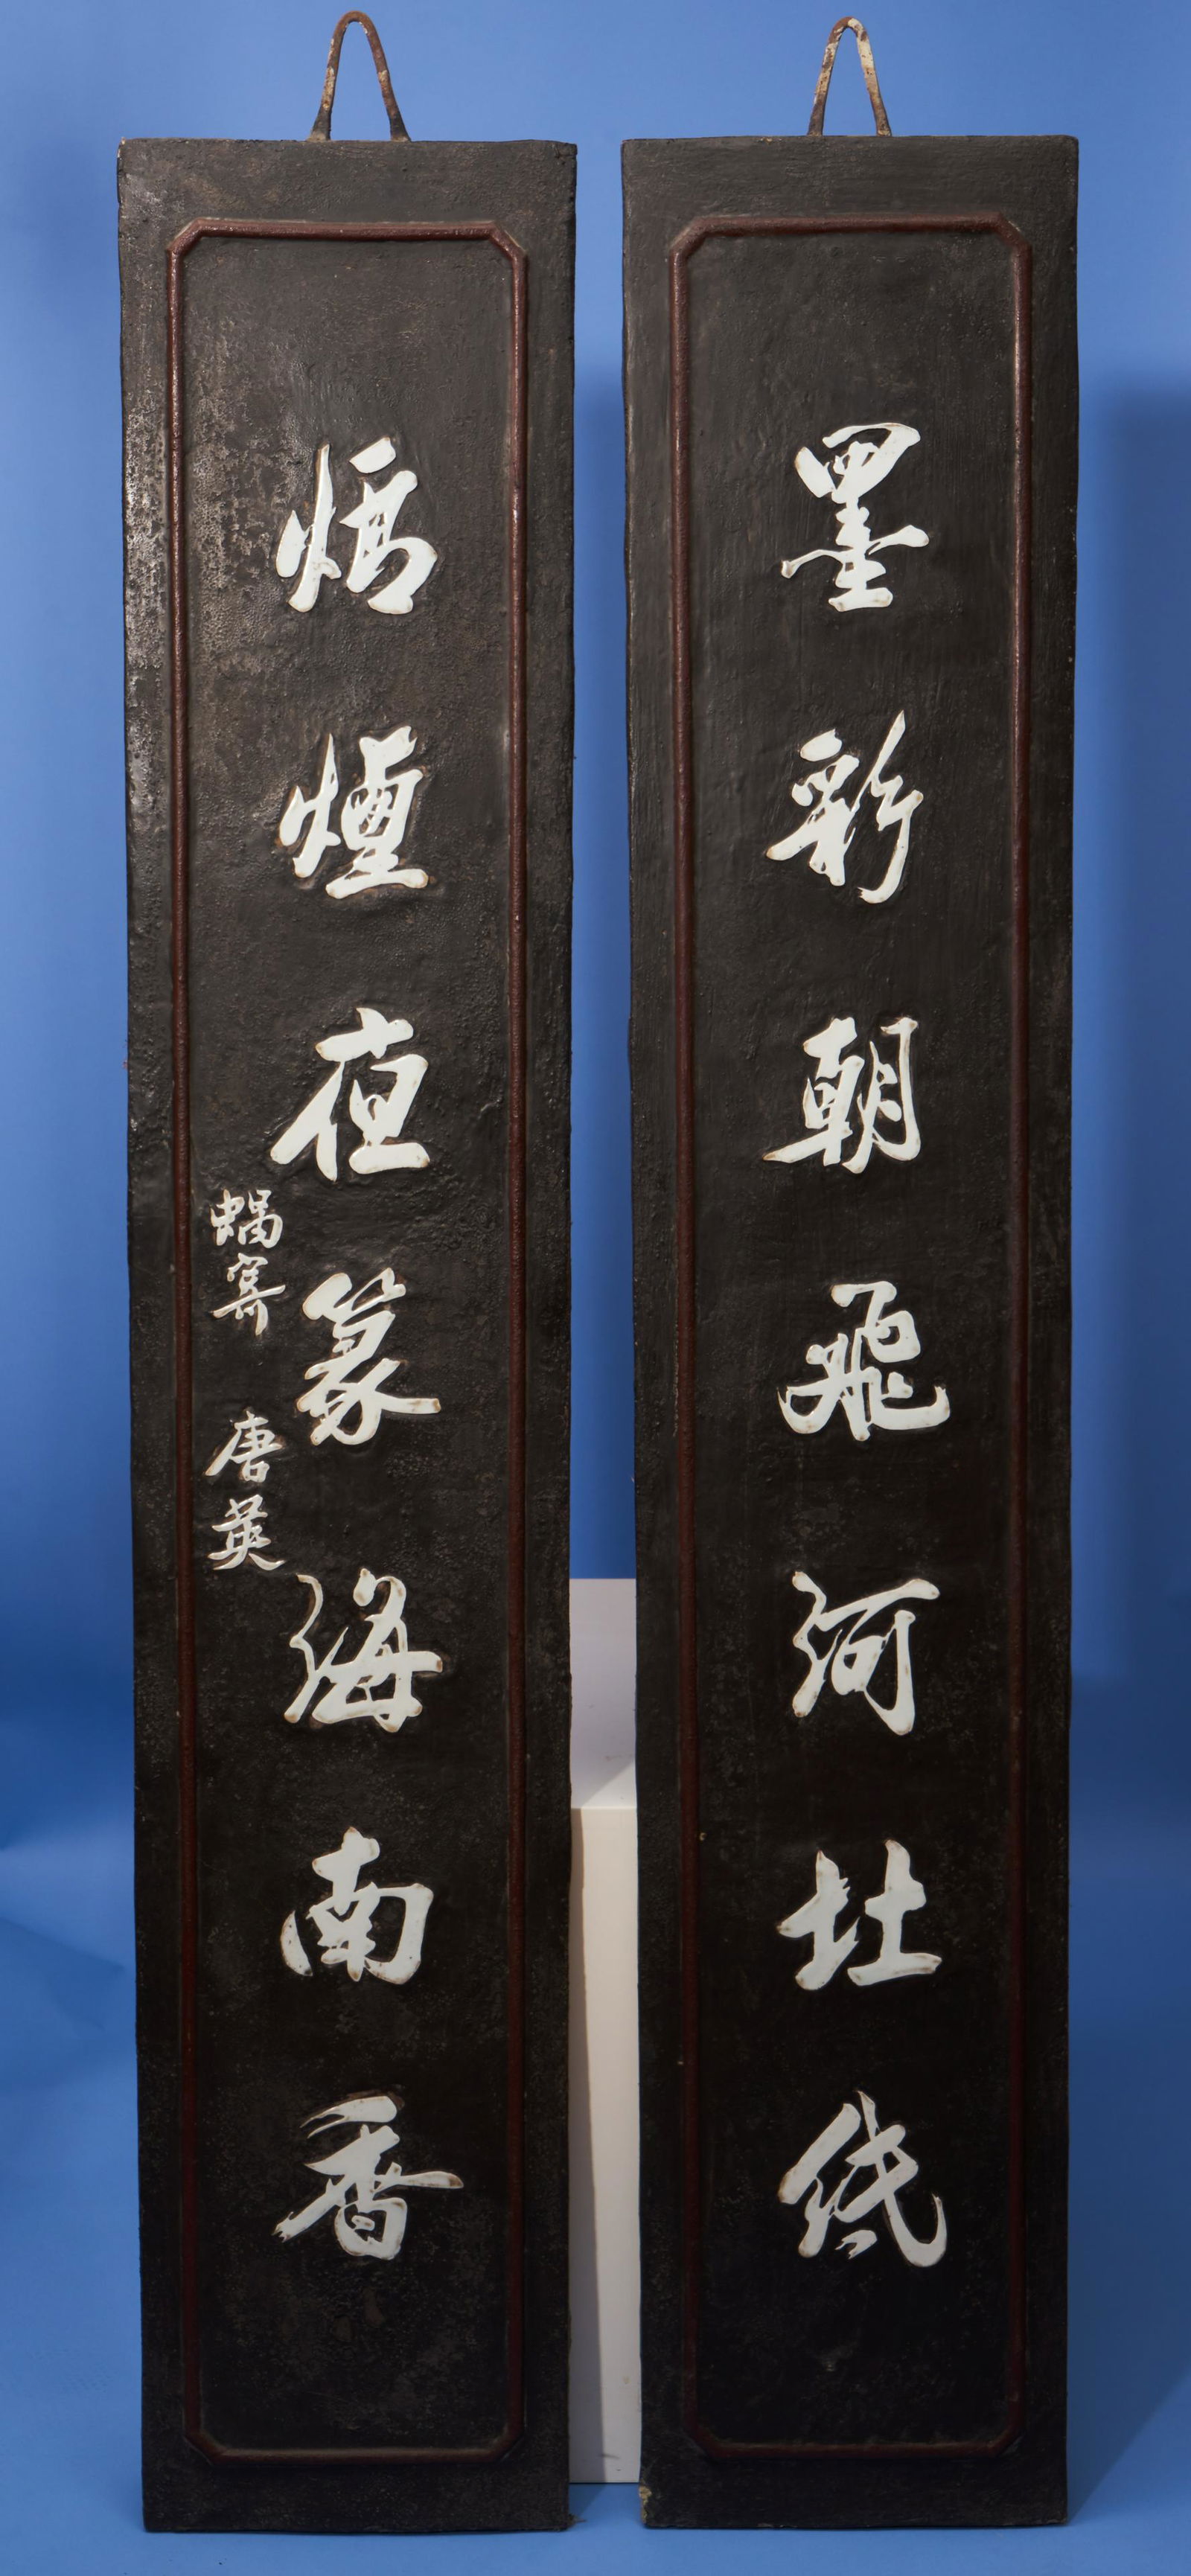 墨彩朝飛河北紙
爐煙夜篆海南香
蝸寄 唐英